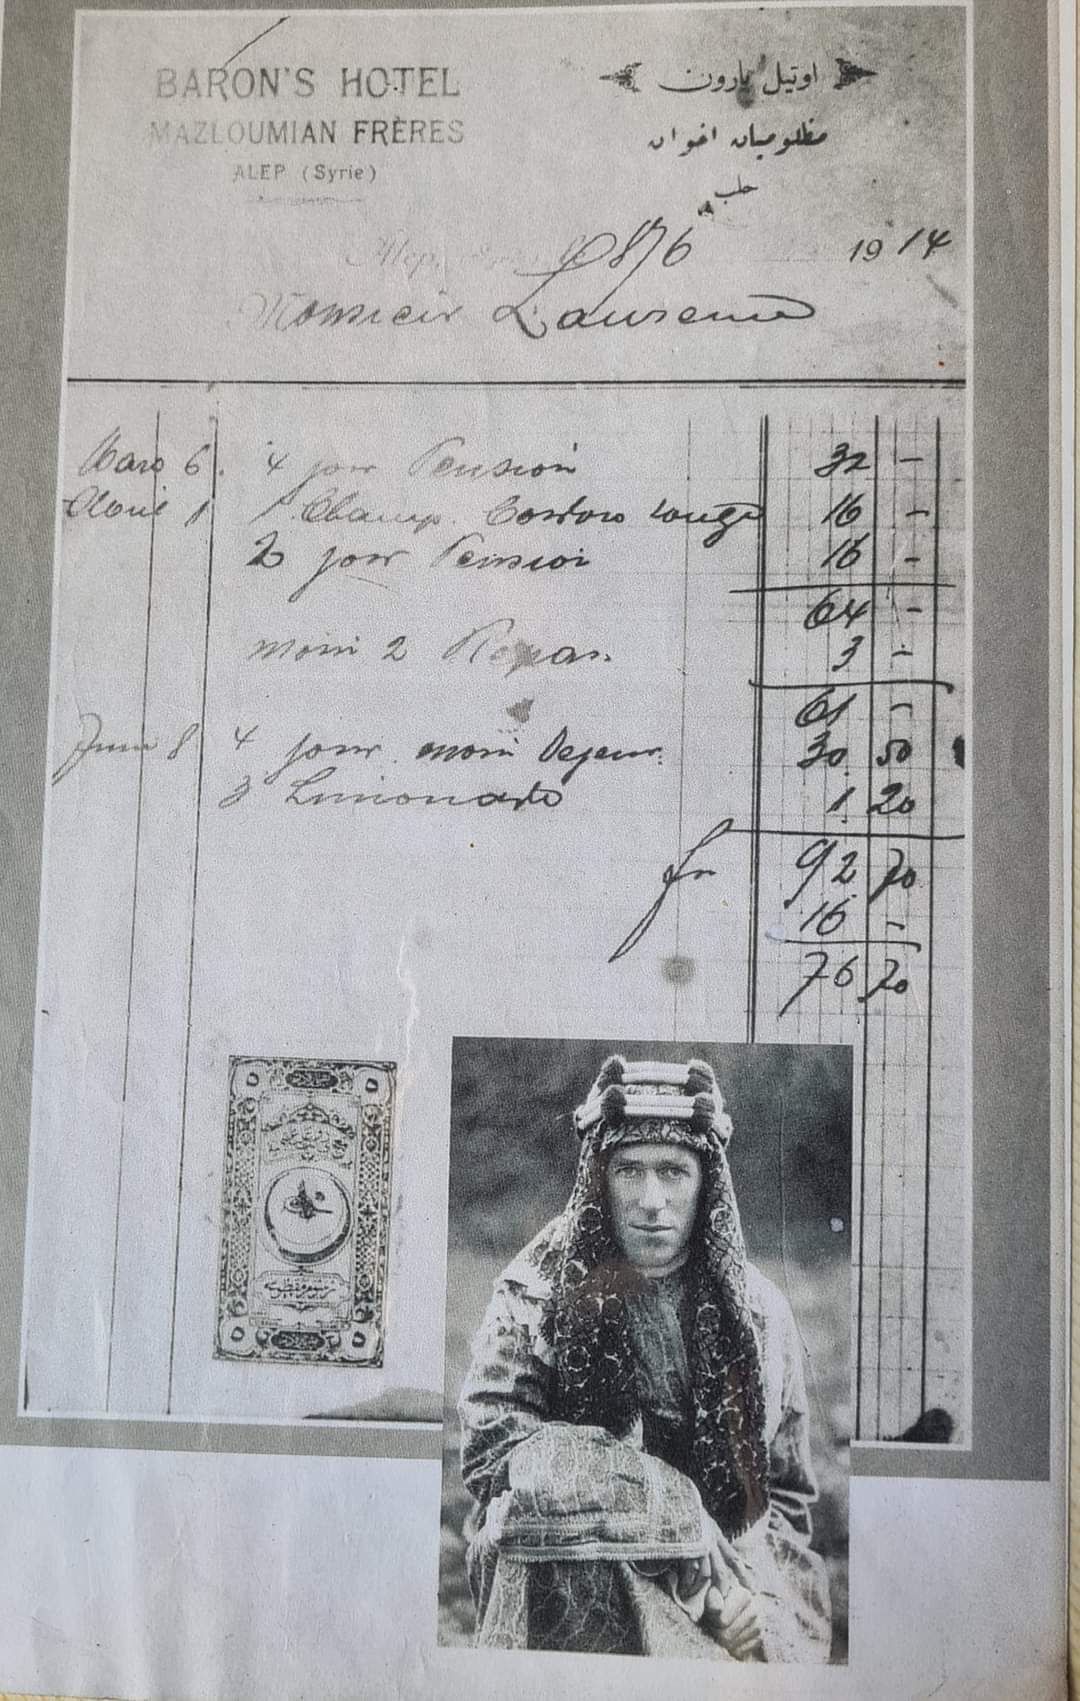 BARON'S HOTEL
MAZLOUMIAN FRÈRES
ALEP (Syrie)
اوتيل بارون
مظلوميان اخوان
حلب
Alep, le 8/6 1914
Monsieur Laurence
Mars 6. 4 jour Pension 32 -
Avril 1 1 Champ. Cordon rouge 16 -
2 jour Pension 16 -
64 -
moin 2 Repas. 3 -
61 -
Juin 8 4 jour moin Dejeur. 30 50
3 Limonade 1 20
fr 92 70
16 -
76 70